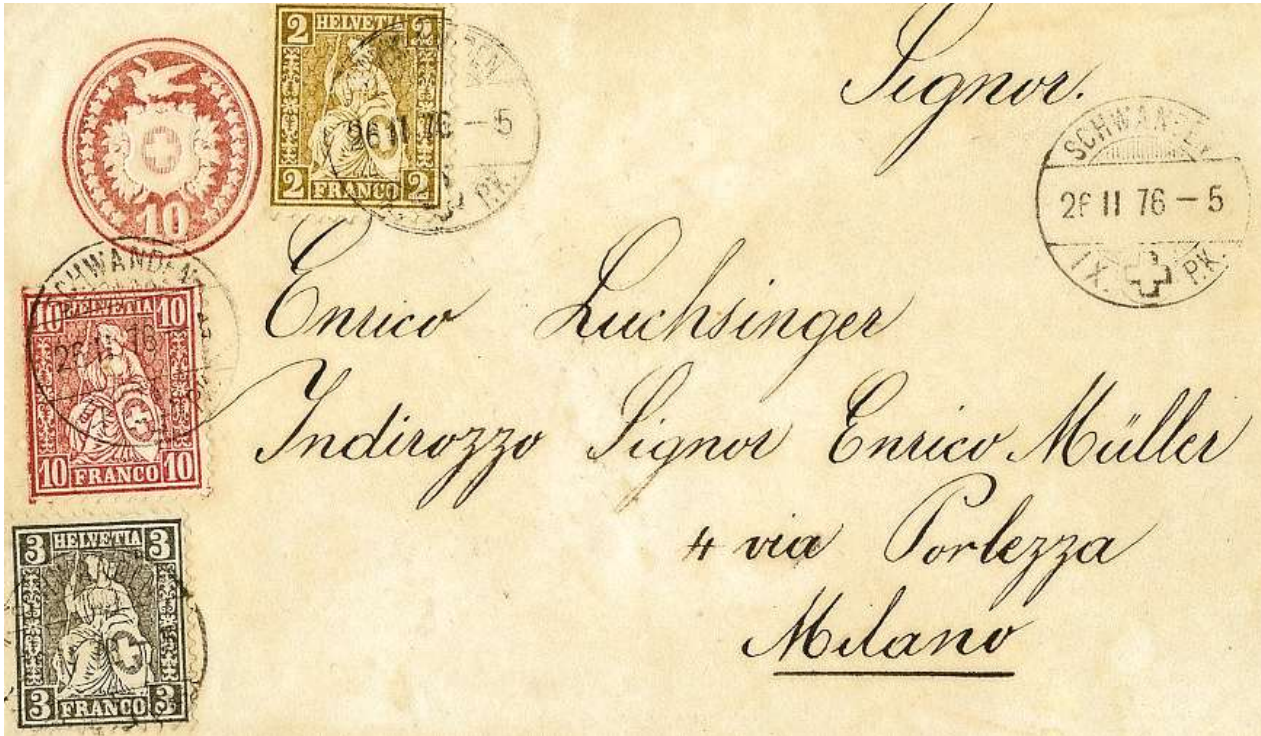 2 HELVETIA 2
26 II 76 - 5
2 FRANCO 2
P.K.
10
Signor.
SCHWANDEN
26 II 76 - 5
IX. P.K.
SCHWANDEN
10 HELVETIA 10
26 II 76
10 FRANCO 10
Enrico Luchsinger
Indirozzo Signor Enrico Müller
4 via Porlezza
Milano
3 HELVETIA 3
3 FRANCO 3